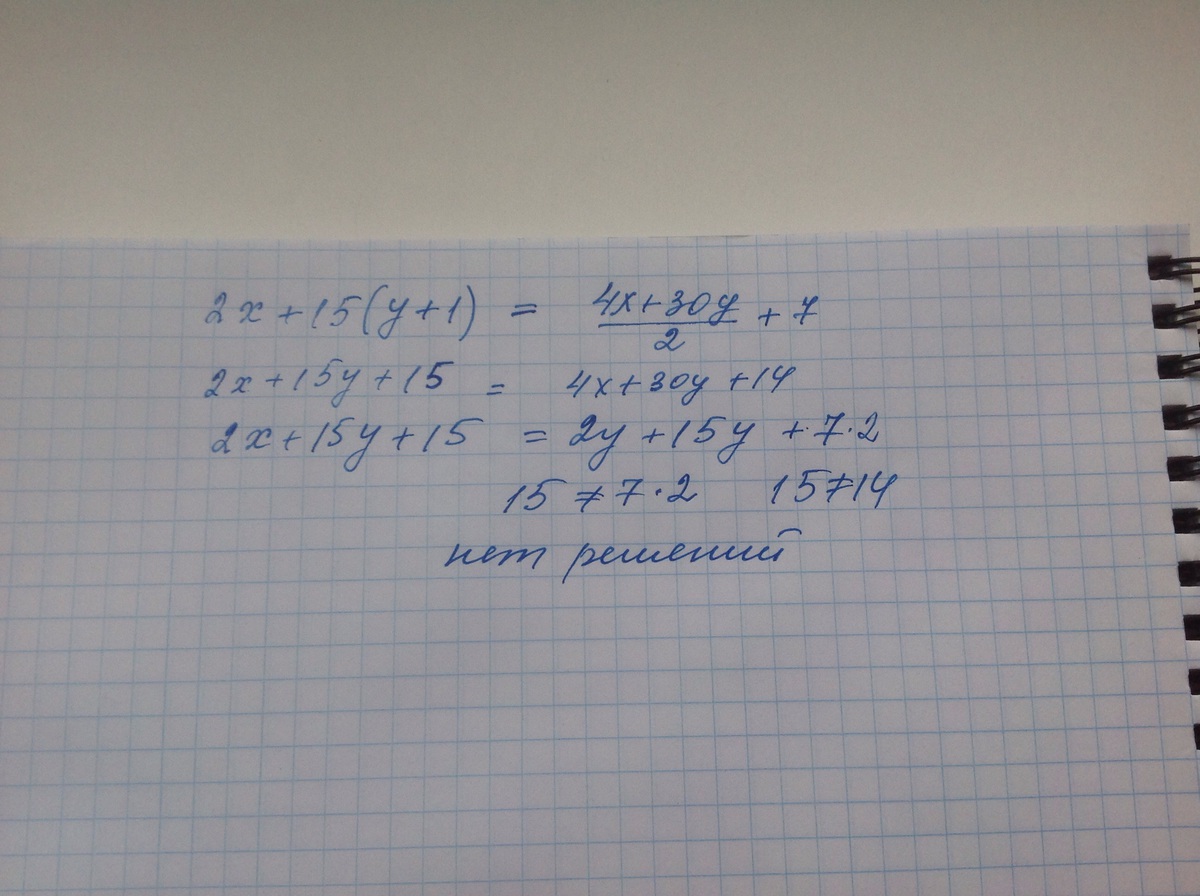 2x + 15(y+1) = (4x+30y)/2 + 7
2x + 15y + 15 = 4x + 30y + 14
2x + 15y + 15 = 2y + 15y + 7·2
15 ≠ 7·2 15 ≠ 14
нет решений